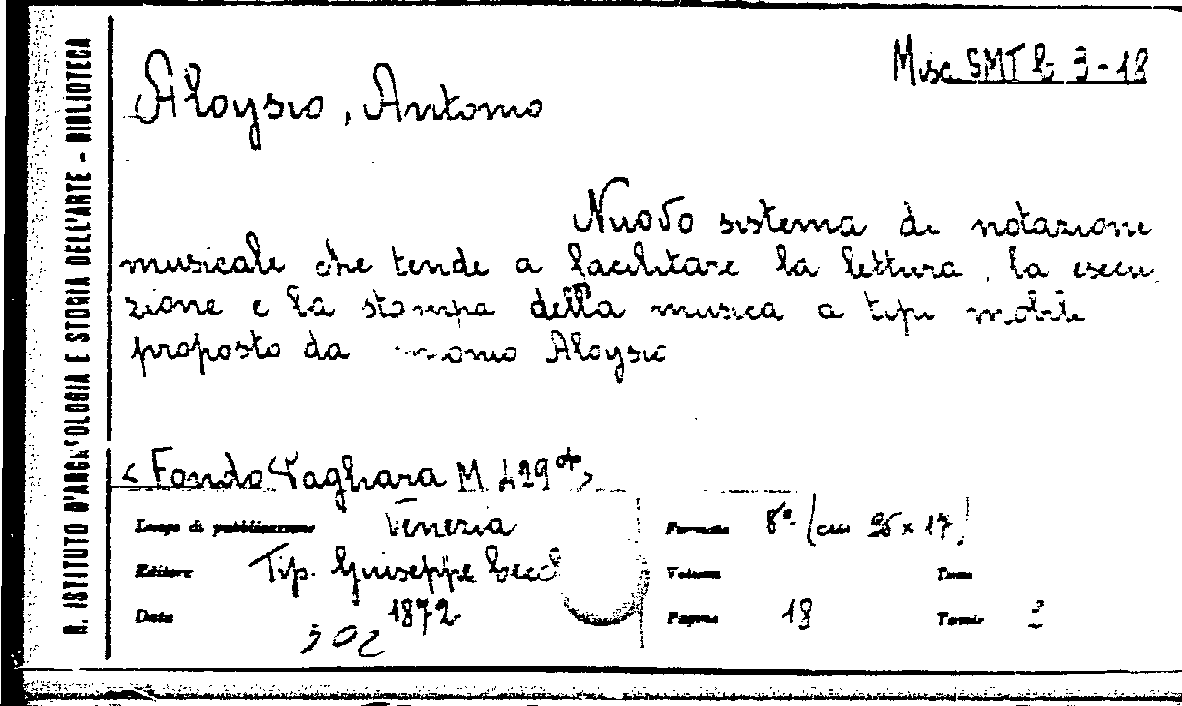 R. ISTITUTO D'ARCHEOLOGIA E STORIA DELL'ARTE - BIBLIOTECA
Misc. SMT b 3-18
Aloysio, Antonio
Nuovo sistema di notazione
musicale che tende a facilitare la lettura, la esecu
zione e la stampa della musica a tipi mobili
proposto da Aloysio
< Fondo Vagliara M 429
Luogo di pubblicazione Venezia
Formato 8º (cm 26 x 17)
Editore Tip. Giuseppe
Volume Tomo
Data 1872
Pagine 18
302